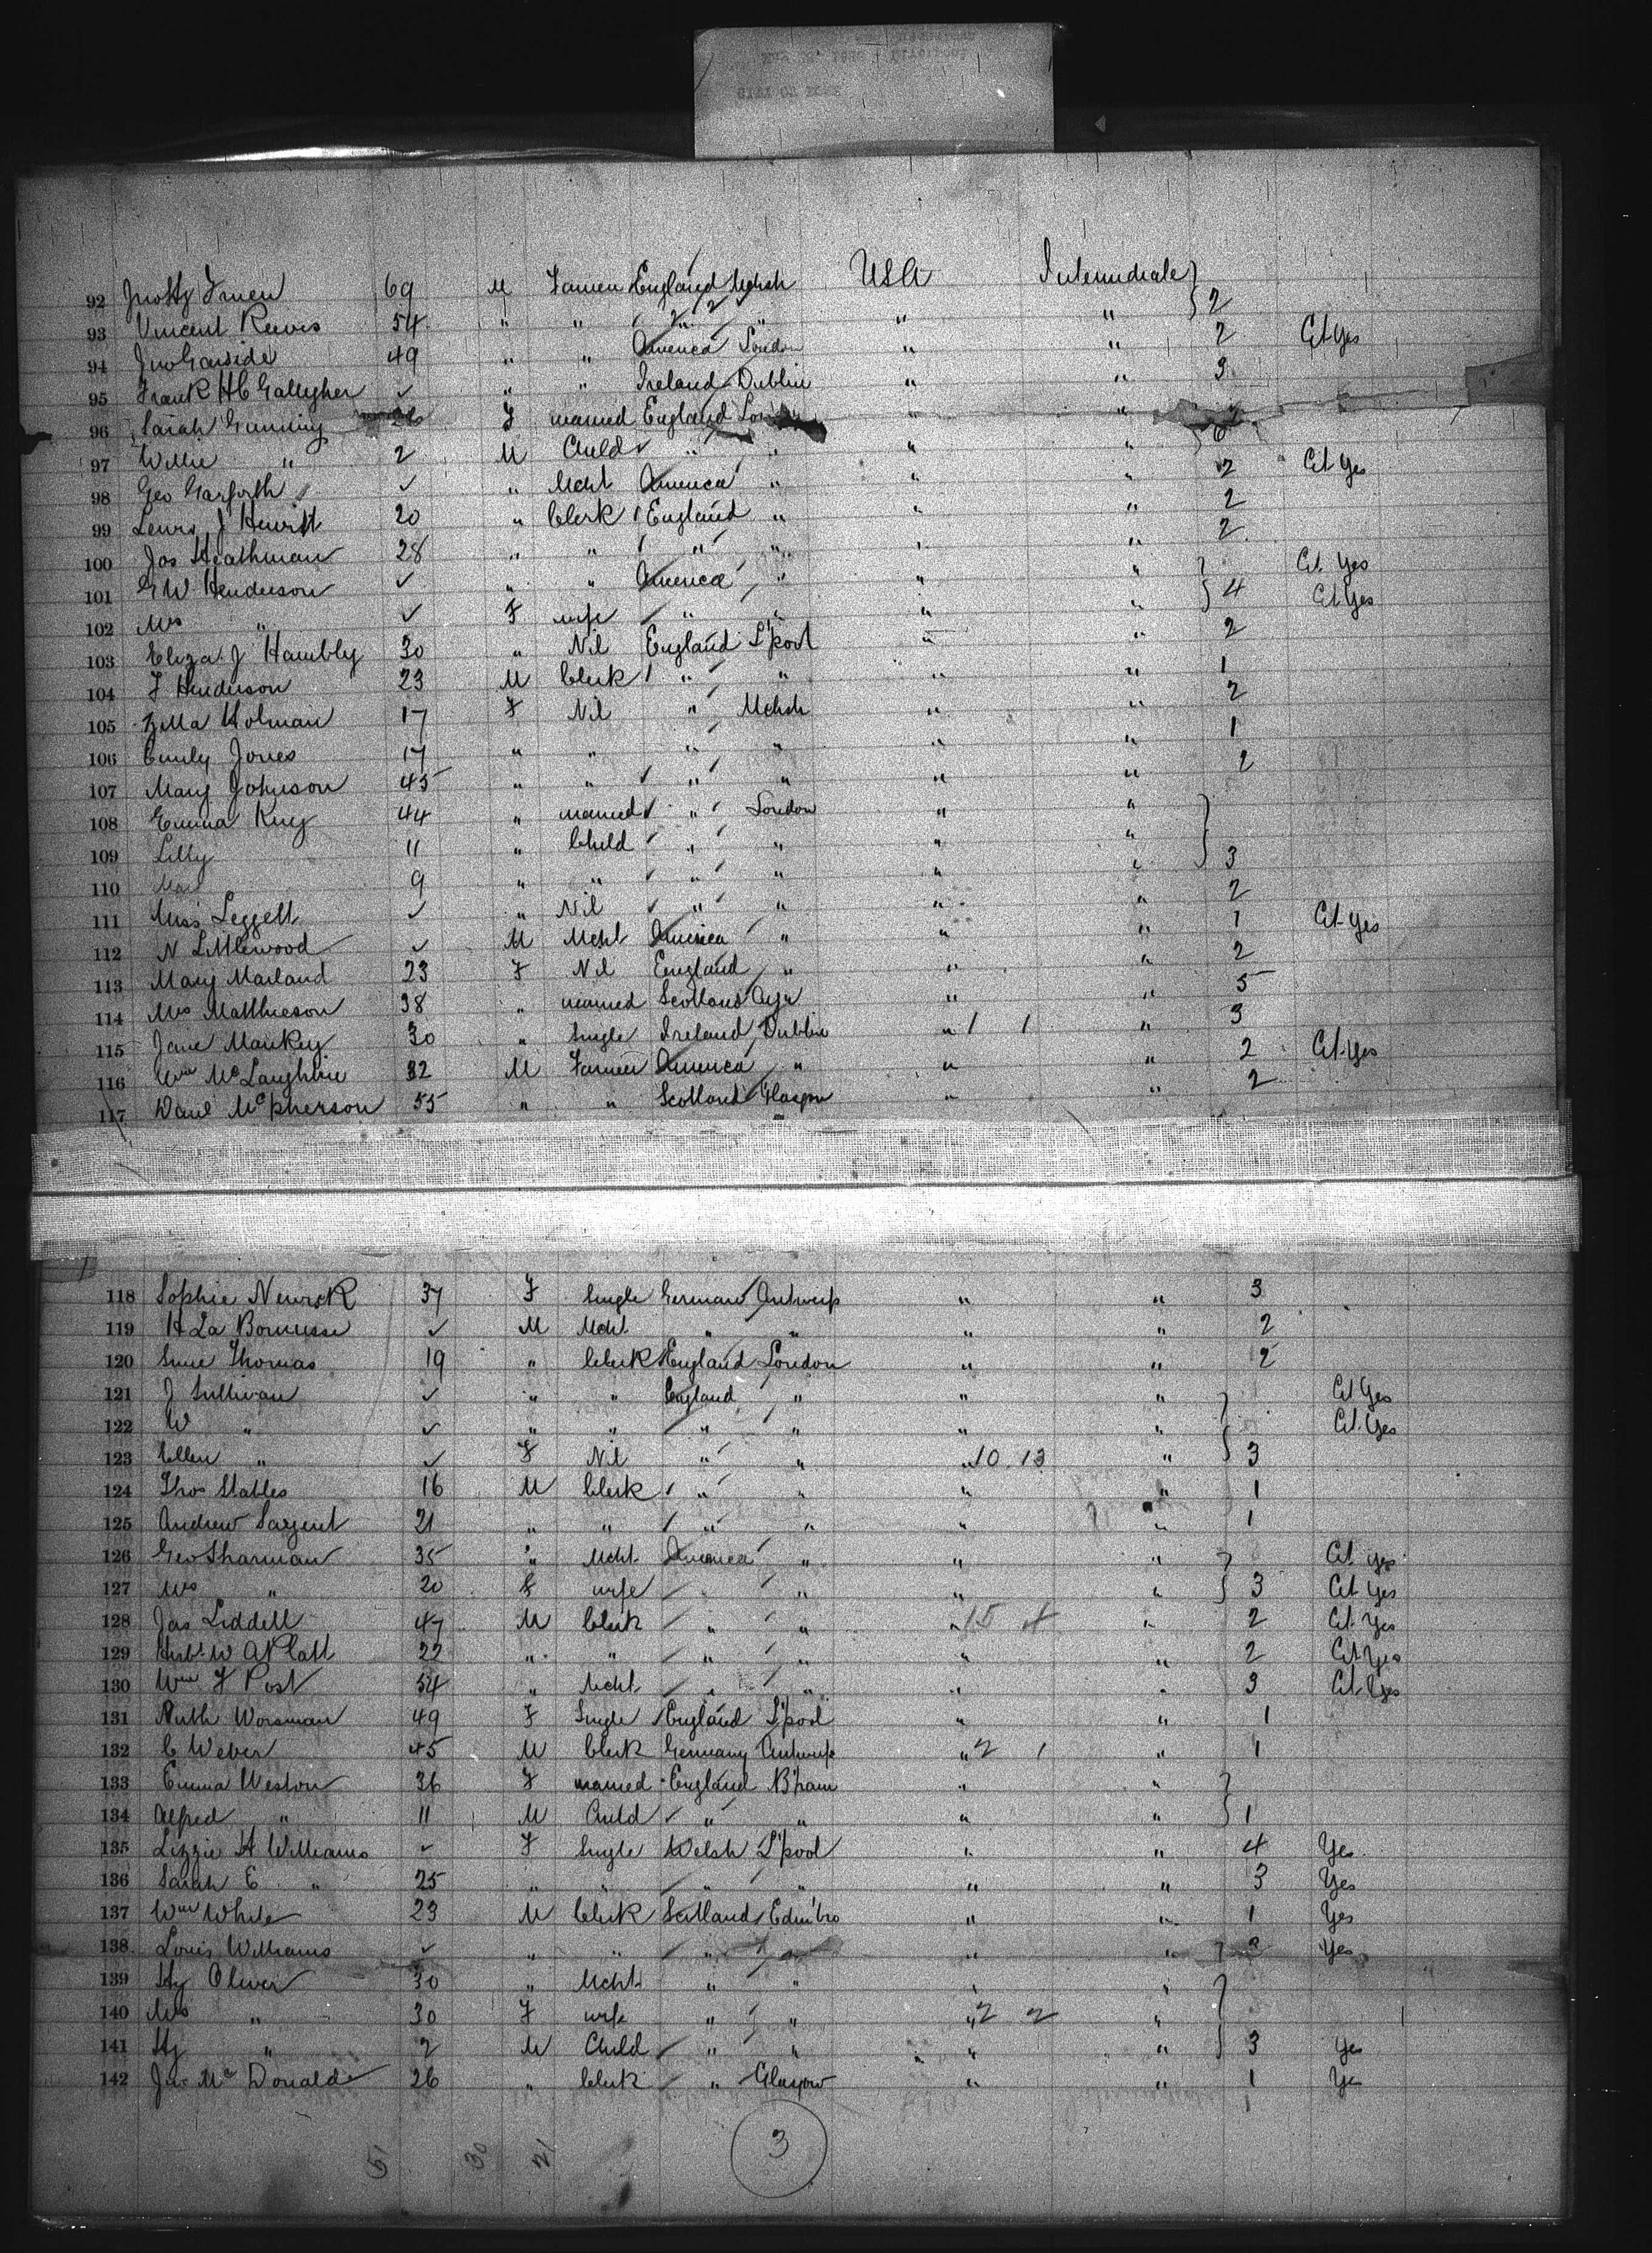 92 Jno Hy Truen 69 M Farmer England Mchstr USA Intermediate } 2
93 Vincent Reeves 54 " " " " " "
94 Jno Garside 49 " " America London " " 2 Cit Yes
95 Frank H C Gallagher ✓ " " Ireland Dublin " " 3
96 Sarah Gunning 26 F married England " "
97 Willie " 2 M Child " " " " 6
98 Geo Garforth ✓ " Mcht America " " " 2 Cit Yes
99 Lewis J Hewitt 20 " Clerk England " " " 2
100 Jos Heathman 28 " " " " " " 2
101 G W Henderson ✓ " " America " " " } Cit Yes
102 Mrs " ✓ F wife " " " " } 4 Cit Yes
103 Eliza J Hambly 30 " Nil England L'pool " " 2
104 F Henderson 23 M Clerk " " " " 1
105 Zella Holman 17 F Nil " Mchstr " " 2
106 Emily Jones 17 " " " " " " 1
107 Mary Johnson 45 " " " " " " 2
108 Emma King 44 " married " London " " }
109 Lilly 11 " Child " " " "
110 9 " " " " " " } 3
111 Miss Leggett ✓ " Nil " " " " 2
112 N Littlewood ✓ M Mcht America " " " 1 Cit Yes
113 Mary Marland 23 F Nil England " " " 2
114 Mrs Matthieson 38 " married Scotland Ayr " " 5
115 Jane Mankey 30 " Single Ireland Dublin " 1 1 " 3
116 Wm McLaughlin 32 M Farmer America " " " 2 Cit Yes
117 Danl McPherson 55 " " Scotland Glasgow " " 2
118 Sophie 37 F Single German Antwerp " " 3
119 H La ✓ M Mcht " " " " 2
120 Thomas 19 " Clerk England London " " 2
121 J Sullivan ✓ " " England " " " } Cit Yes
122 W " ✓ " " " " " " Cit Yes
123 Ellen " ✓ F Nil " " " 10.13 " } 3
124 Thos Stables 16 M Clerk " " " " 1
125 Andrew Sargent 21 " " " " " " 1
126 Geo Sharman 35 " Mcht America " " " } Cit Yes
127 Mrs " 20 F wife " " " " } 3 Cit Yes
128 Jas Liddell 47 M Clerk " " " 15 4 " 2 Cit Yes
129 Herbt W A Platt 22 " " " " " " 2 Cit Yes
130 Wm F Post 54 " Mcht " " " " 3 Cit Yes
131 Ruth Worsman 49 F Single England L'pool " " 1
132 C Weber 45 M Clerk Germany Antwerp " 2 1 " 1
133 Emma Weston 36 F married England B'ham " " }
134 Alfred " 11 M Child " " " " } 1
135 Lizzie H Williams ✓ F Single Welsh L'pool " " 4 Yes
136 Sarah E " 25 " " " " " " 3 Yes
137 Wm White 23 M Clerk Scotland Edin'bro " " 1 Yes
138 Louis Williams ✓ " " " " " " Yes
139 Hy Oliver 30 " Mcht " " " " }
140 Mrs " 30 F wife " " " 2 2 "
141 Hy " 2 M Child " " " " } 3 Yes
142 Jno McDonald 26 " Clerk " Glasgow " " 1 Yes
5 30 21
3